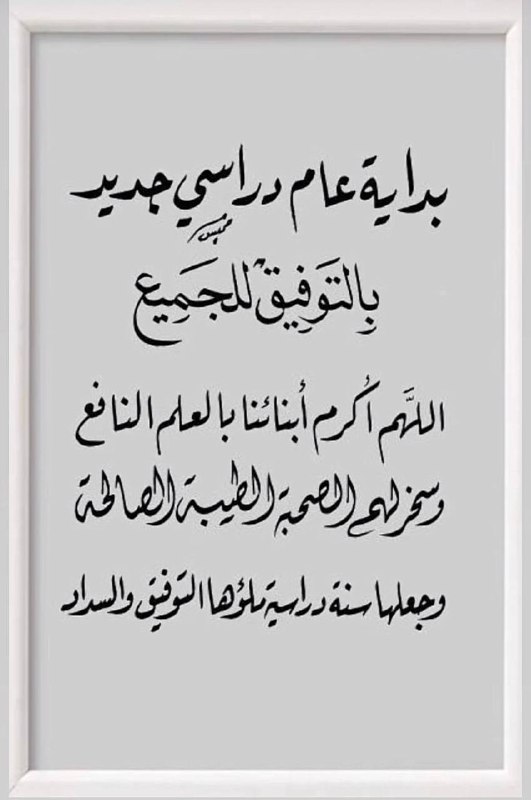 بداية عام دراسي جديد
بِالتَوَفِيقْ للجَمِيع
اللهَّم أُكرم أبنائنا بالعلم النافع
وسخر لهم الصحبة الطيبة الصالحة
وجعلها سنة دراسية ملؤها التوفيق والسداد